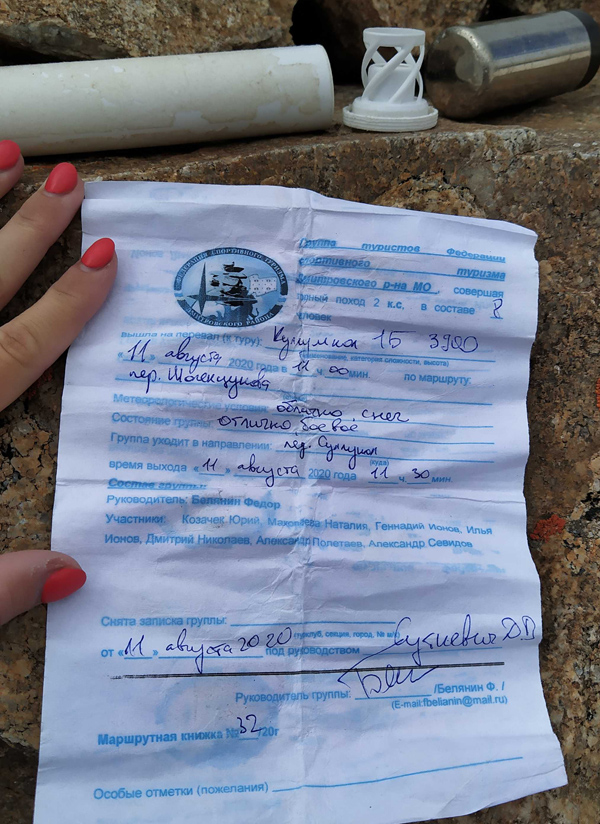 ФЕДЕРАЦИЯ СПОРТИВНОГО ТУРИЗМА
ДМИТРОВСКОГО РАЙОНА
Группа туристов Федерации
спортивного туризма
Дмитровского р-на МО, совершая
поход 2 к.с., в составе 8
человек
вышла на перевал (к туру): 1Б 3920
(наименование, категория сложности, высота)
«11» августа 2020 года в 11 ч 00 мин по маршруту:
пер. Шогенцукова
Метеорологические условия: облачно, снег
Состояние группы: отлично, боевое
Группа уходит в направлении: лед.
(куда)
время выхода «11» августа 2020 года 11 ч. 30 мин.
Состав группы:
Руководитель: Белянин Федор
Участники: Козачек Юрий, Наталия, Геннадий Ионов, Илья
Ионов, Дмитрий Николаев, Александр Полетаев, Александр Севидов
Снята записка группы:
(турклуб, секция, город, № м/к)
от «11» августа 2020 под руководством Суткевич Д.В
Руководитель группы: /Белянин Ф. /
(E-mail:fbelianin@mail.ru)
Маршрутная книжка № 32 /20г
Особые отметки (пожелания)